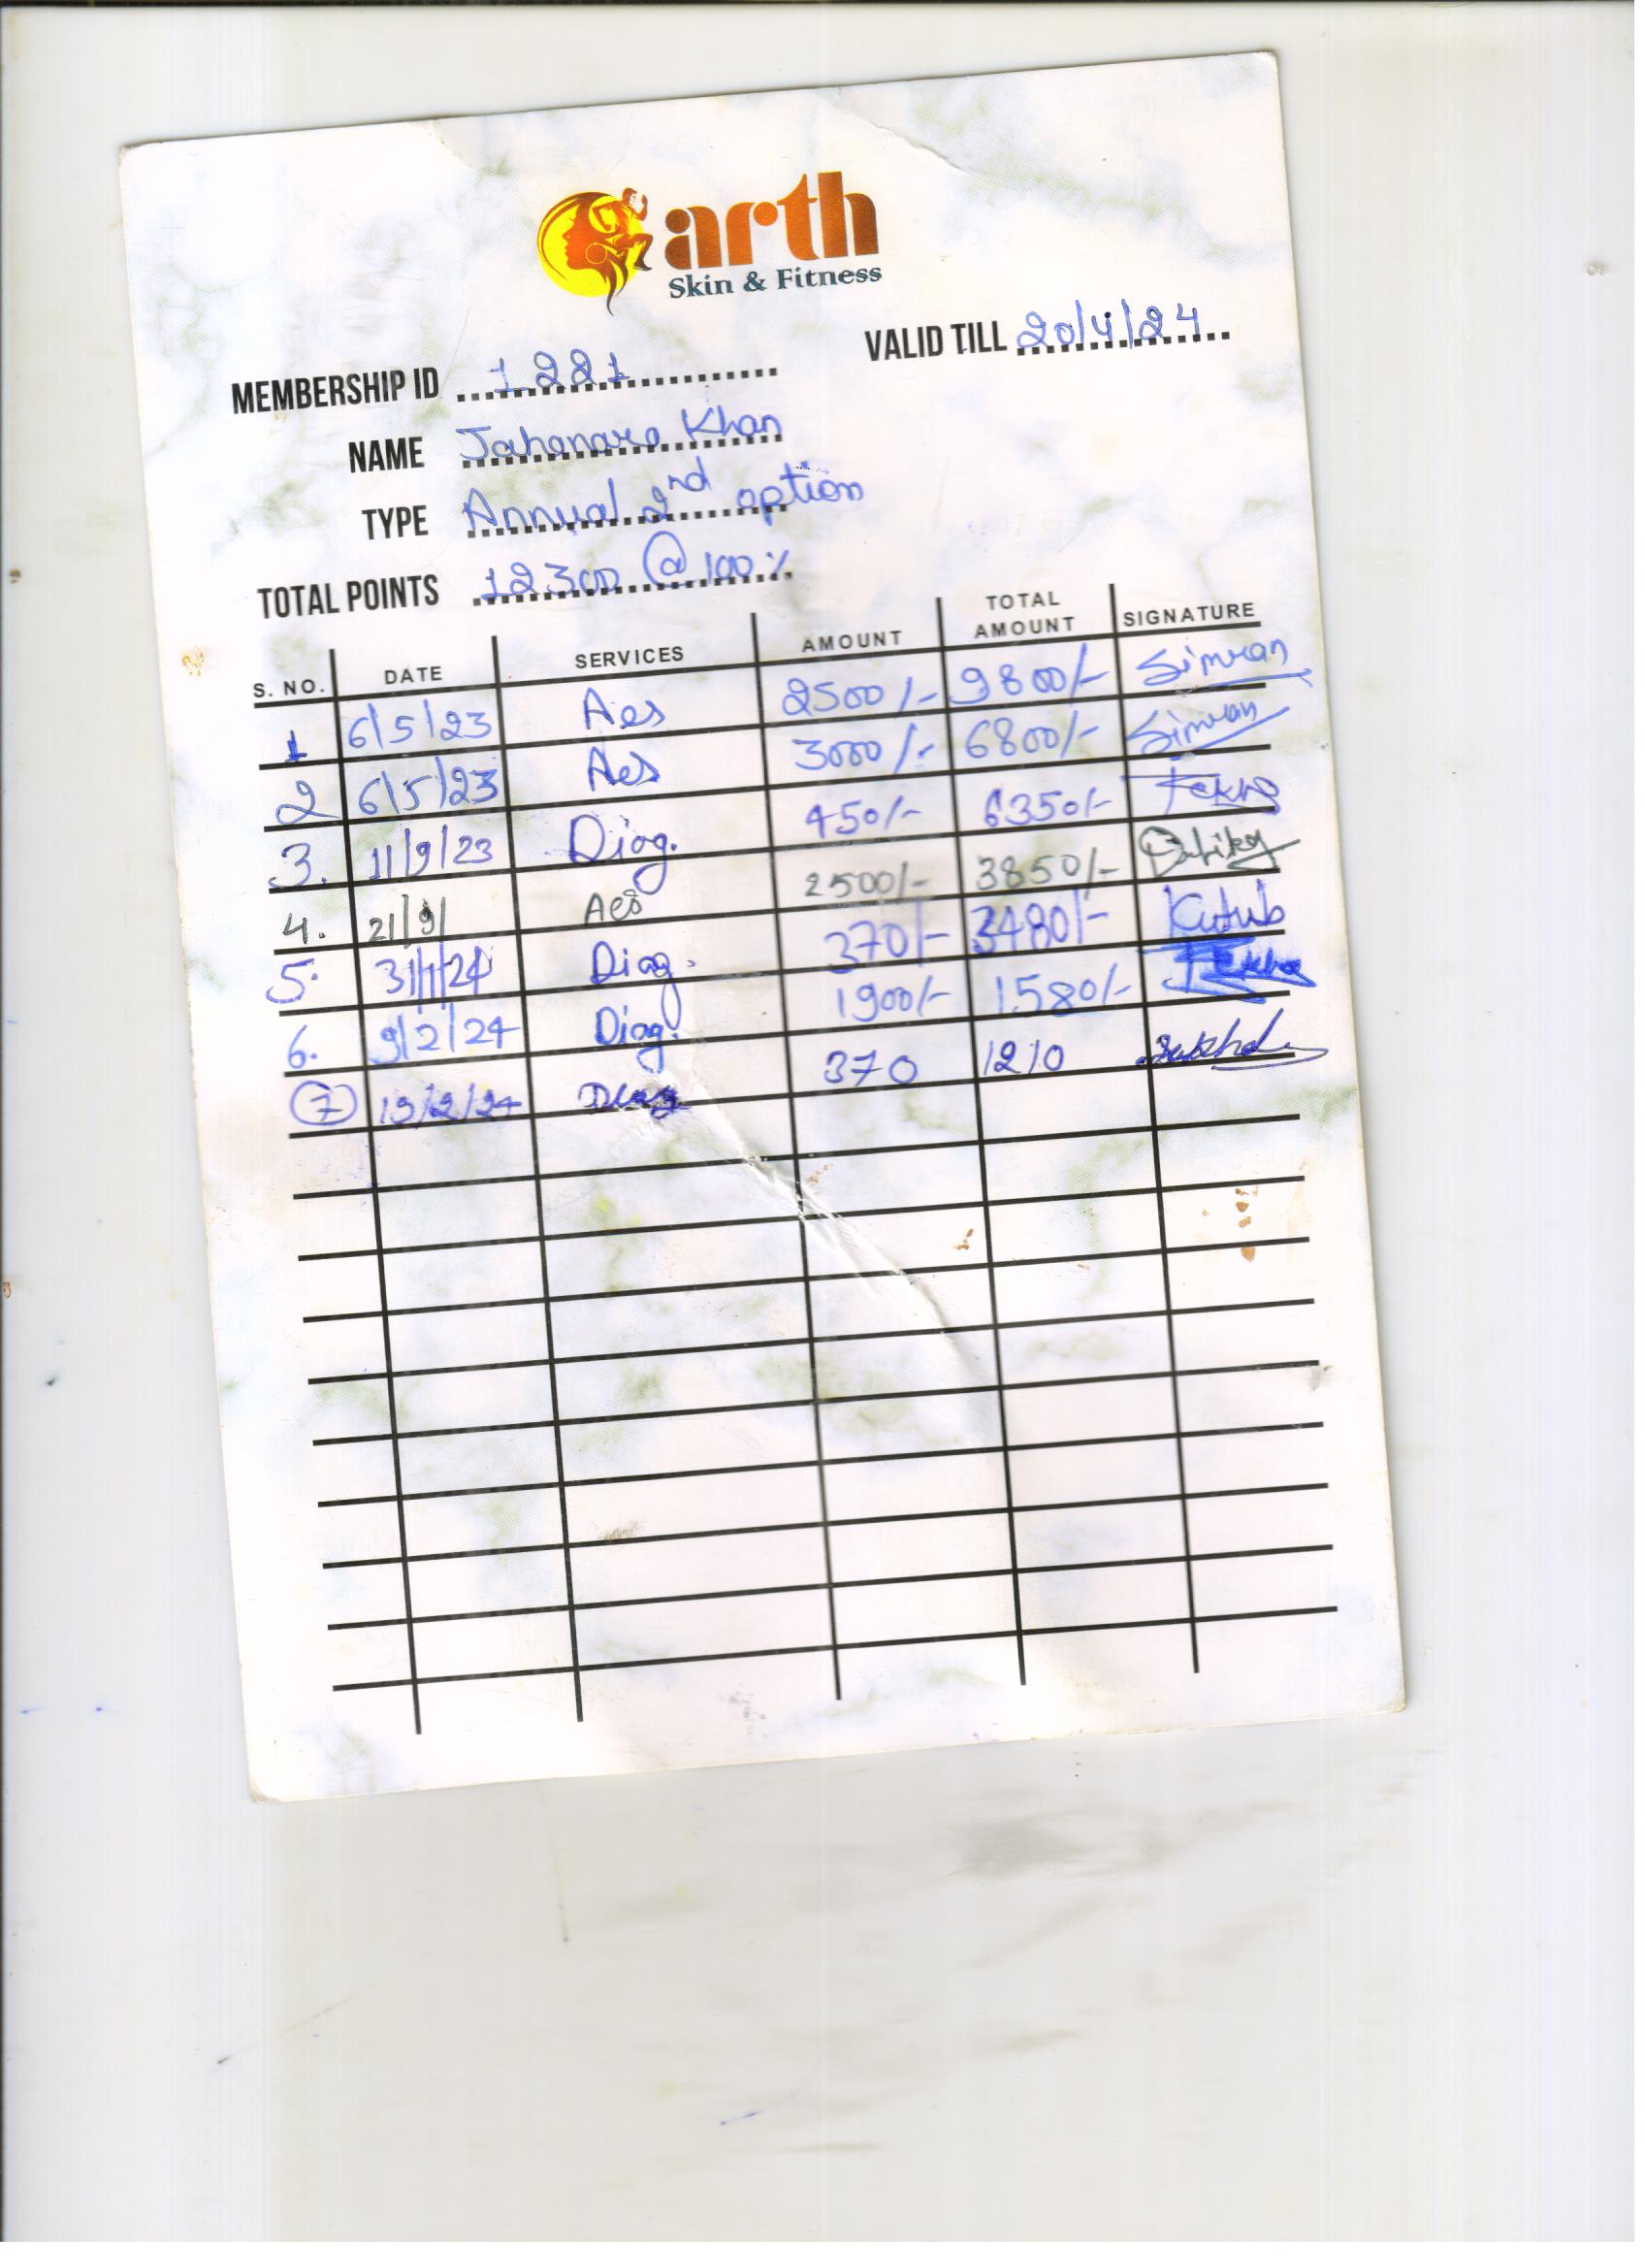 arth
Skin & Fitness
VALID TILL 20/4/24
MEMBERSHIP ID 1221
NAME Jahanara Khan
TYPE Annual 2nd option
TOTAL POINTS 12300 @ 100%
S. NO. DATE SERVICES AMOUNT TOTAL AMOUNT SIGNATURE
1 6/5/23 Aes 2500/- 9800/- Simran
2 6/5/23 Aes 3000/- 6800/- Simran
3. 11/9/23 Diag. 450/- 6350/-
4. 21/9/ Aes 2500/- 3850/-
5. 31/1/24 Diag. 370/- 3480/- Kutub
6. 9/2/24 Diag. 1900/- 1580/-
7 13/2/24 Diag 370 1210